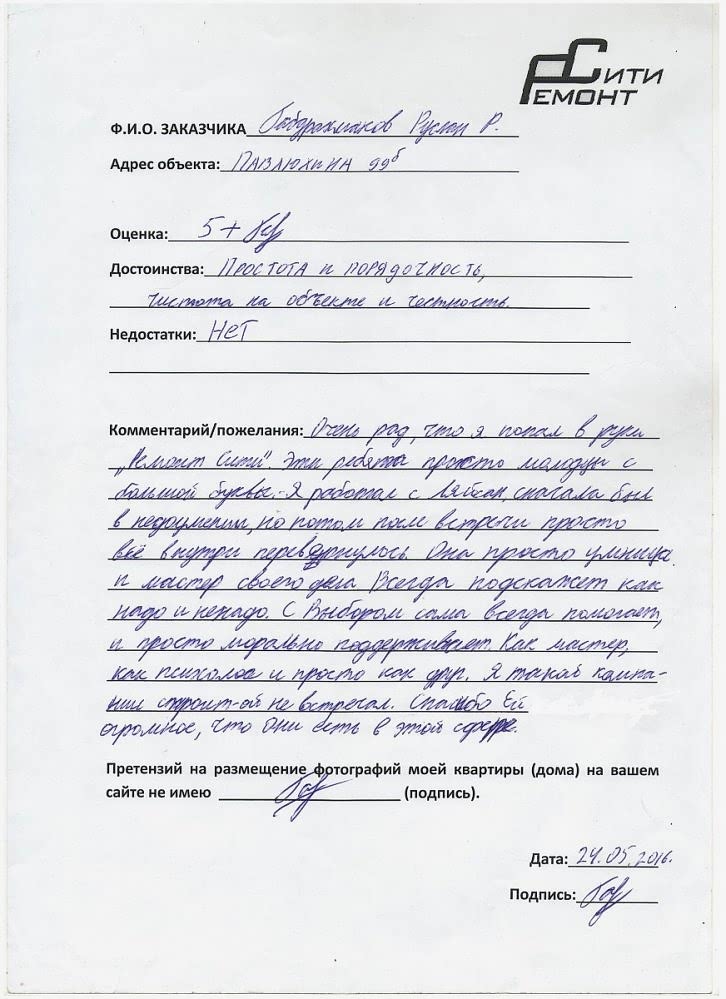 Сити
Ремонт
Ф.И.О. ЗАКАЗЧИКА Габдрахманов Руслан Р.
Адрес объекта: Павлюхина 99б
Оценка: 5+
Достоинства: Простота и порядочность,
чистота на объекте и честность.
Недостатки: Нет
Комментарий/пожелания: Очень рад, что я попал в руки
"Ремонт Сити". Эти ребята просто молодцы с
большой буквы. Я работал с Ляйсан, сначала был
в недоумении, но потом после встречи просто
всё внутри перевернулось. Она просто умница
и мастер своего дела Всегда подскажет как
надо и ненадо. С Выбором сама всегда помогает,
и просто морально поддерживает. Как мастер,
как психолог и просто как друг. Я такой компа-
нии строит-ой не встречал. Спасибо Ей
огромное, что Они есть в этой сфере.
Претензий на размещение фотографий моей квартиры (дома) на вашем
сайте не имею (подпись).
Дата: 24.05.2016.
Подпись: